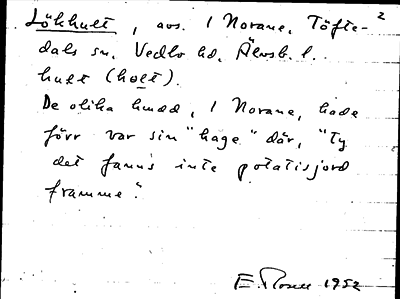 Lökhult, avs. 1 Norane, Töfte- 2
dals sn, Vedbo hd, Älvsb. l.
hult (holt).
De olika hmdd, 1 Norane, hade
förr var sin "hage" där, "ty
det fanns inte potatisjord
framme".
E. Rosell 1952